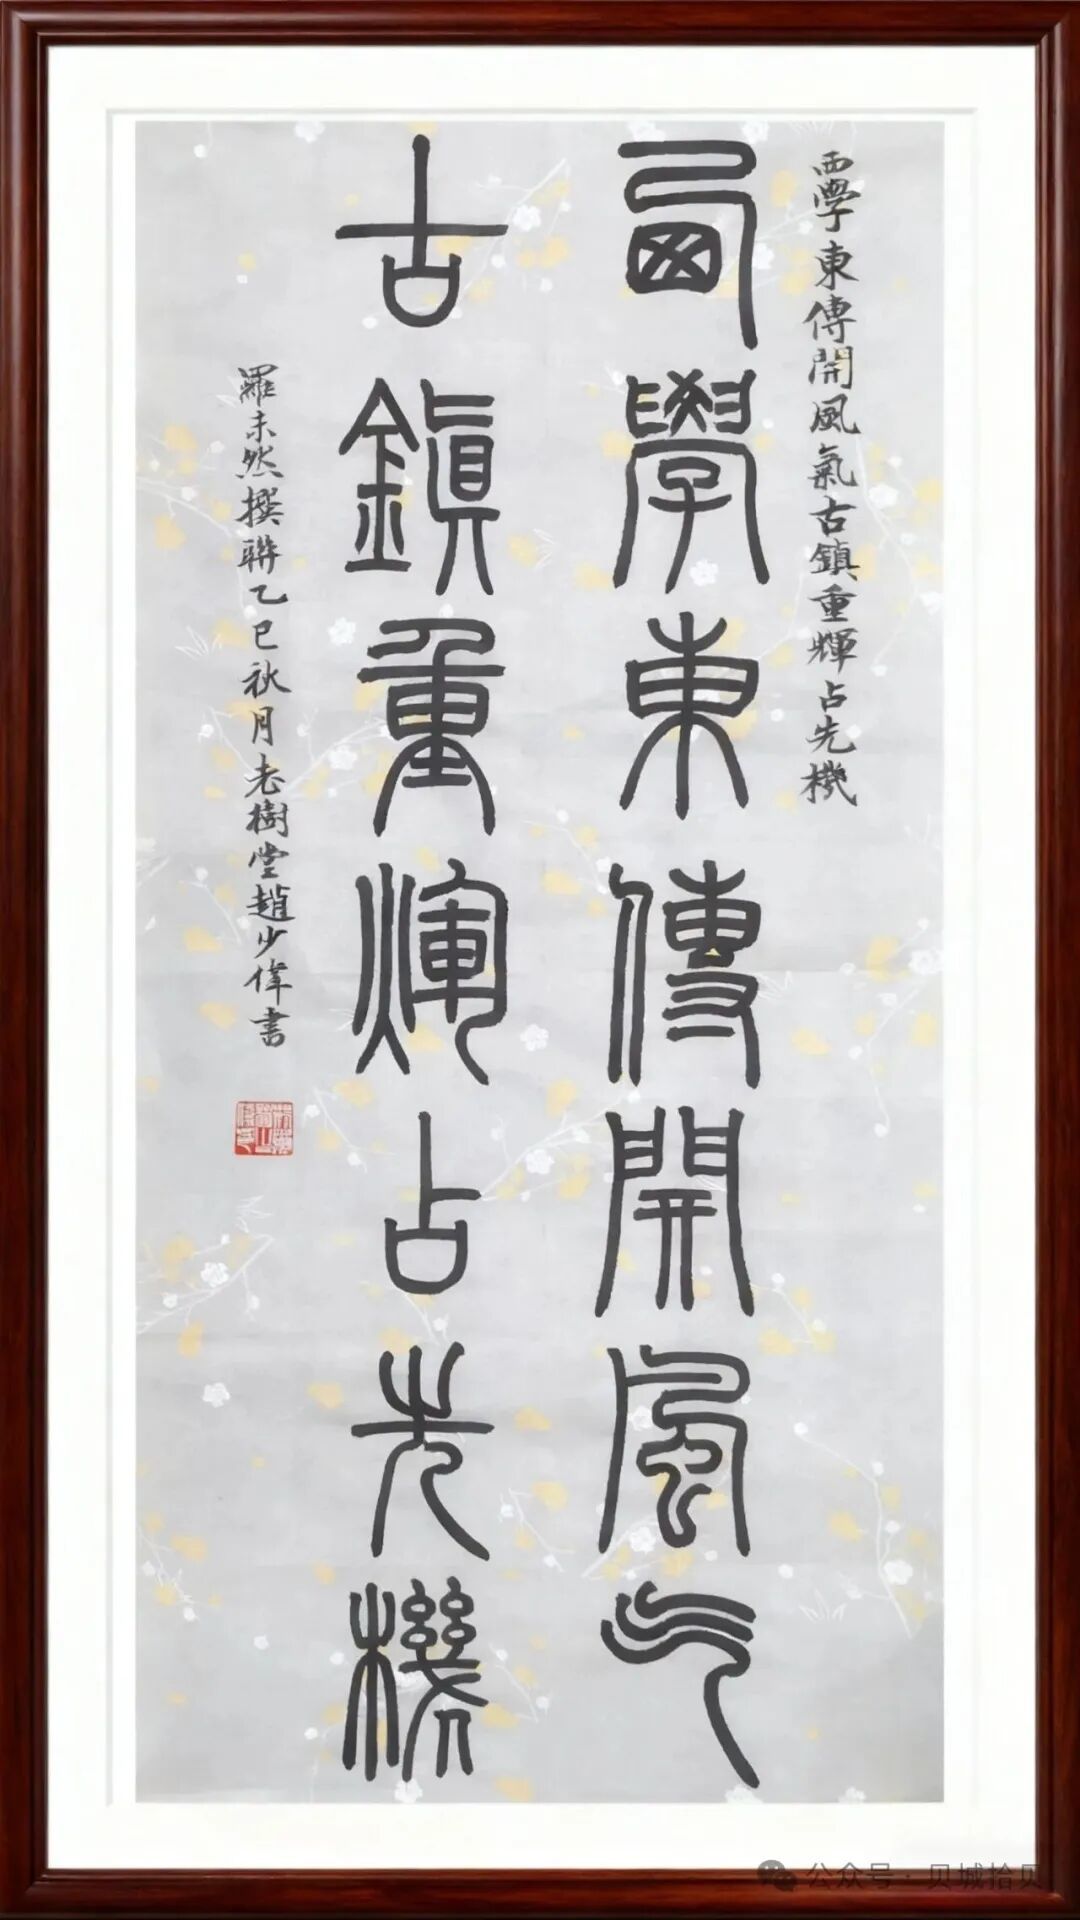 西學東傳開風氣古鎮重輝占先機
西學東傳開風气
古鎮重煇占先機
羅未然撰聯乙巳秋月老樹堂趙少偉書
公众号 · 贝城拾贝